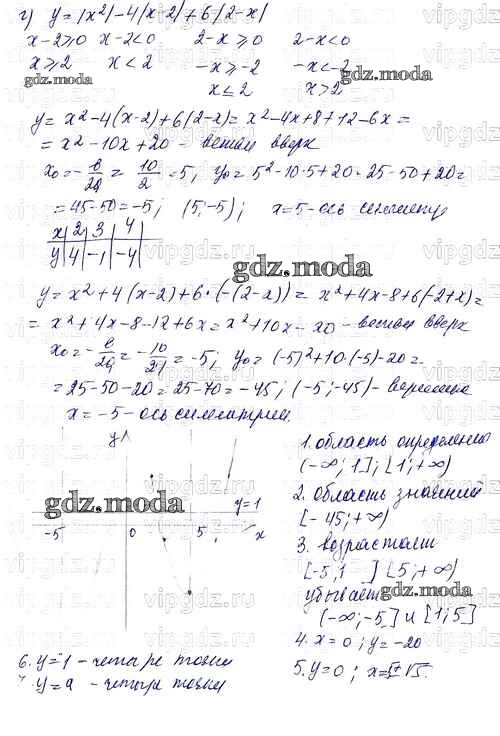 г) y = |x²| - 4|x-2| + 6|2-x|
x-2≥0 x-2<0 2-x≥0 2-x<0
x≥2 x<2 -x≥-2 -x<-2
x≤2 x>2
gdz.moda
gdz.moda
y = x² - 4(x-2) + 6(2-x) = x² - 4x + 8 + 12 - 6x =
= x² - 10x + 20 - ветви вверх
x₀ = - в/2a = 10/2 = 5; y₀ = 5² - 10·5 + 20 = 25 - 50 + 20 =
= 45 - 50 = -5; (5; -5); x = 5 - ось симметр
x 2 3 4
y 4 -1 -4
gdz.moda
y = x² + 4(x-2) + 6·(-(2-x)) = x² + 4x - 8 + 6(-2+x) =
= x² + 4x - 8 - 12 + 6x = x² + 10x - 20 - ветви вверх
x₀ = - в/2a = -10/2·1 = -5; y₀ = (-5)² + 10·(-5) - 20 =
= 25 - 50 - 20 = 25 - 70 = -45; (-5; -45) - вершина
x = -5 - ось симметрии.
y
gdz.moda
y=1
-5 0 5 x
1. область определения
(-∞; 1]; [1; +∞)
2. область значений
[-45; +∞)
3. возрастали
[-5; 1 ] [5; +∞)
gdz.moda
убывает
(-∞; -5] и [1; 5]
4. x = 0; y = -20
5. y = 0; x = 5±√5.
6. y = 1 - четыре точки
y = a - четыре точки
vipgdz.ru